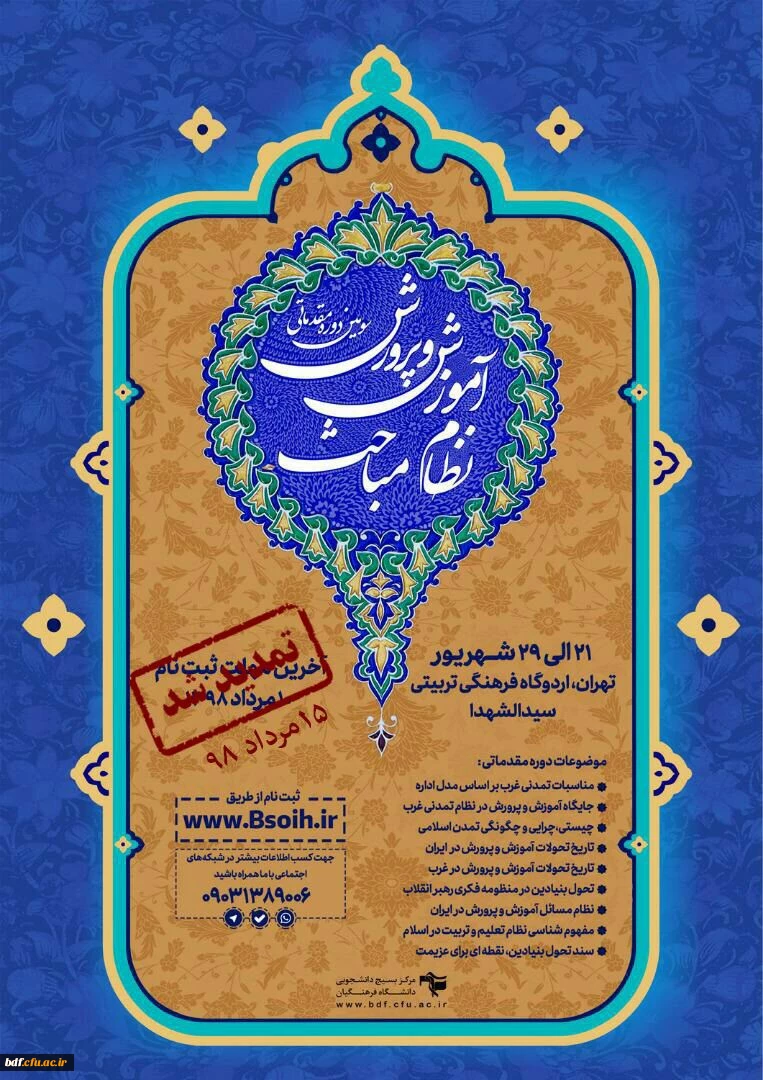 سومین دوره مقدماتی
آموزش و پرورش
نظام مباحث
۲۱ الی ۲۹ شهریور
تهران، اردوگاه فرهنگی تربیتی
سیدالشهدا
آخرین مهلت ثبت نام
مرداد ۹۸
تمدید شد
۱۵ مرداد ۹۸
موضوعات دوره مقدماتی:
مناسبات تمدنی غرب بر اساس مدل اداره
جایگاه آموزش و پرورش در نظام تمدنی غرب
چیستی، چرایی و چگونگی تمدن اسلامی
تاریخ تحولات آموزش و پرورش در ایران
تاریخ تحولات آموزش و پرورش در غرب
تحول بنیادین در منظومه فکری رهبر انقلاب
نظام مسائل آموزش و پرورش در ایران
مفهوم شناسی نظام تعلیم و تربیت در اسلام
سند تحول بنیادین، نقطه ای برای عزیمت
ثبت نام از طریق
www.Bsoih.ir
جهت کسب اطلاعات بیشتر در شبکه‌های
اجتماعی با ما همراه باشید
۰۹۰۳۱۳۸۹۰۰۶
مرکز بسیج دانشجویی
دانشگاه فرهنگیان
www.bdf.cfu.ac.ir
bdf.cfu.ac.ir